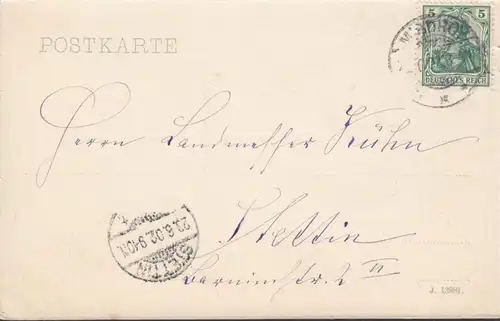 POSTKARTE
5 5
DEUTSCHES REICH
Herrn Landmesser Kühn
Stettin
Barnimstr. 2 II
STETTIN
23.6.02. 9-10N.
1
J. 12991.